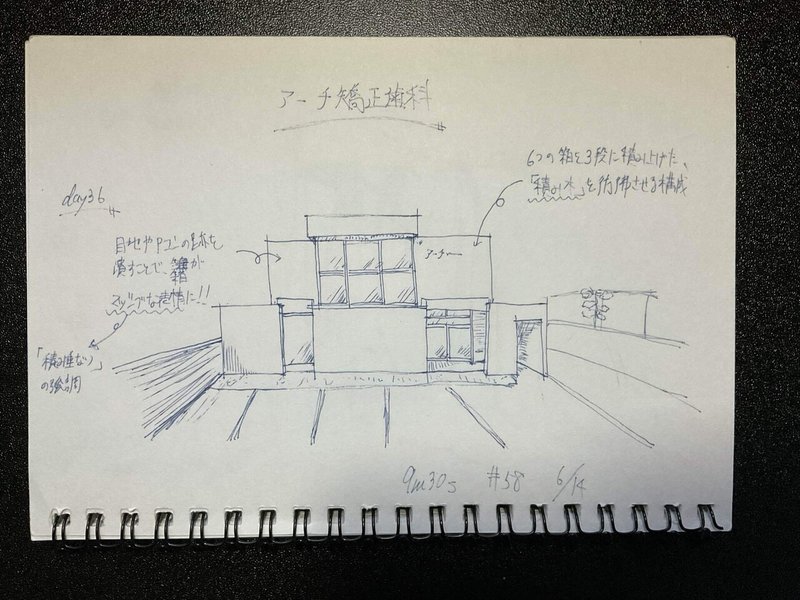 アーチ矯正歯科
6つの箱を3段に積み上げた、
「積み木」を彷彿させる構成
day36
目地やPコンの跡を
潰すことで、箱が
マッシブな表情に!!
アーチ
「積み重なり」
の強調
9m30s #58 6/14